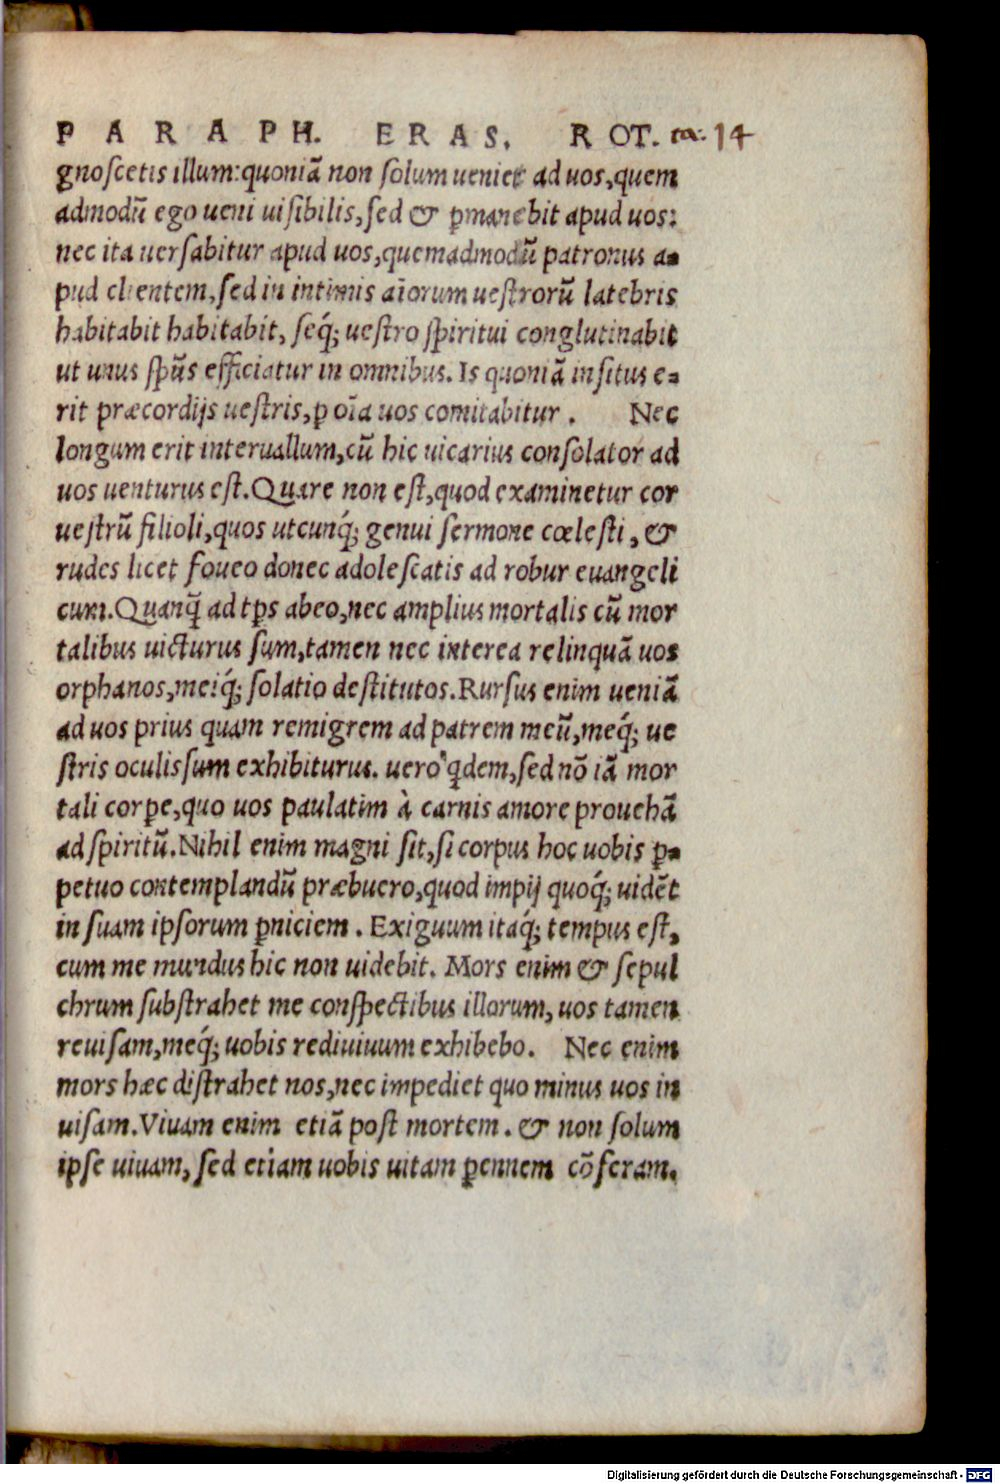 PARAPH. ERAS. ROT. ca. 14
gnoscetis illum: quoniã non solum ueniet ad uos, quem
admodũ ego ueni uisibilis, sed & ꝑmanebit apud uos:
nec ita uersabitur apud uos, quemadmodũ patronus a-
pud clientem, sed in intimis aĩorum uestrorũ latebris
habitabit habitabit, seq́; uestro spiritui conglutinabit
ut unus spũs efficiatur in omnibus. Is quoniã insitus e-
rit præcordijs uestris, ꝑ oĩa uos comitabitur. Nec
longum erit interuallum, cũ hic uicarius consolator ad
uos uenturus est. Quare non est, quod examinetur cor
uestrũ filioli, quos utcunq́; genui sermone cœlesti, &
rudes licet foueo donec adolescatis ad robur euangeli
cum. Quanq̃ ad tp̃s abeo, nec amplius mortalis cũ mor
talibus uicturus sum, tamen nec interea relinquã uos
orphanos, meiq́; solatio destitutos. Rursus enim ueniã
ad uos prius quam remigrem ad patrem meũ, meq́; ue
stris oculis sum exhibiturus. uero q̃dem, sed nõ iã mor
tali corꝑe, quo uos paulatim à carnis amore prouehã
ad spiritũ. Nihil enim magni sit, si corpus hoc uobis ꝑ-
petuo contemplandũ præbuero, quod impij quoq́; uidẽt
in suam ipsorum ꝑniciem. Exiguum itaq́; tempus est,
cum me mundus hic non uidebit. Mors enim & sepul
chrum substrahet me conspectibus illorum, uos tamen
reuisam, meq́; uobis rediuiuum exhibebo. Nec enim
mors hæc distrahet nos, nec impediet quo minus uos in
uisam. Viuam enim etiã post mortem. & non solum
ipse uiuam, sed etiam uobis uitam ꝑennem cõferam.
Digitalisierung gefördert durch die Deutsche Forschungsgemeinschaft - DFG